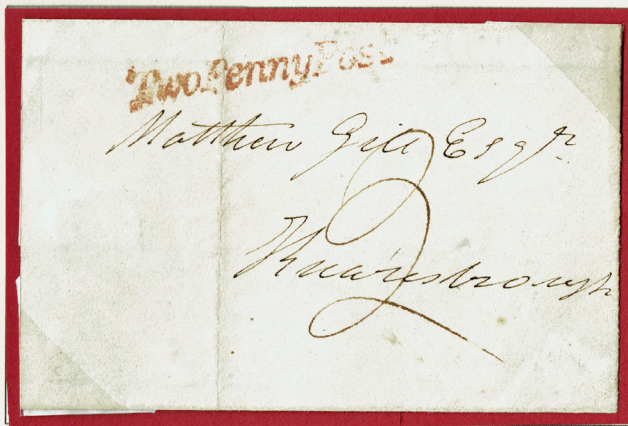 Two Penny Post
Matthew Gill Esqr
2
Knaresborough